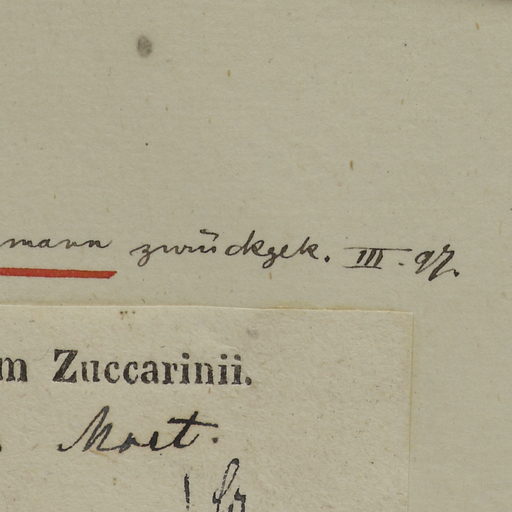 mann zurückgek. III. 97.
m Zuccarinii.
Mart.